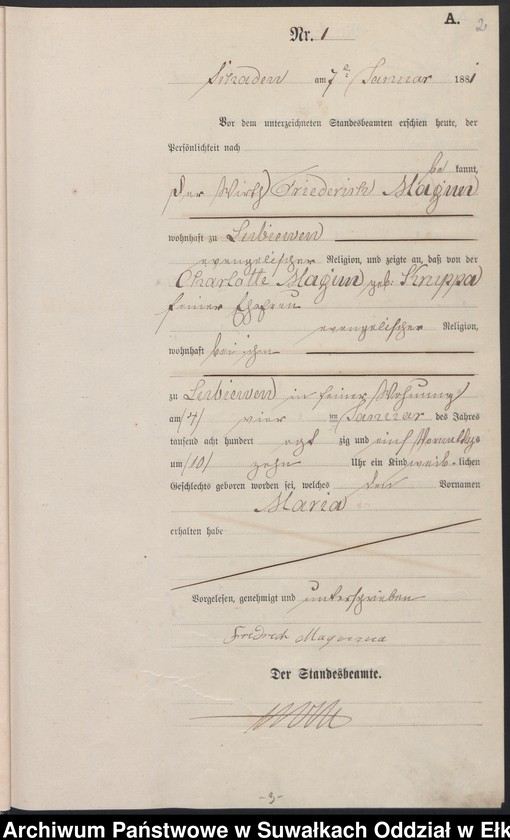 A.
2
Nr. 1
am 7 ten Januar 1881
Vor dem unterzeichneten Standesbeamten erschien heute, der
Persönlichkeit nach
be kannt,
der Wirth Friederich Magun
wohnhaft zu Lubiewen
evangelischer Religion, und zeigte an, daß von der
Charlotte Magun geb: Kruppa
seiner Ehefrau
evangelischer Religion,
wohnhaft bei ihm
zu Lubiewen in seiner Wohnung
am /4/ vier ten Januar des Jahres
tausend acht hundert acht zig und eins Vormittags
um /10/ zehn Uhr ein Kind weib-lichen
Geschlechts geboren worden sei, welches den Vornamen
Maria
erhalten habe
Vorgelesen, genehmigt und unterschrieben
Der Standesbeamte.
-3-
Archiwum Państwowe w Suwałkach Oddział w Ełk